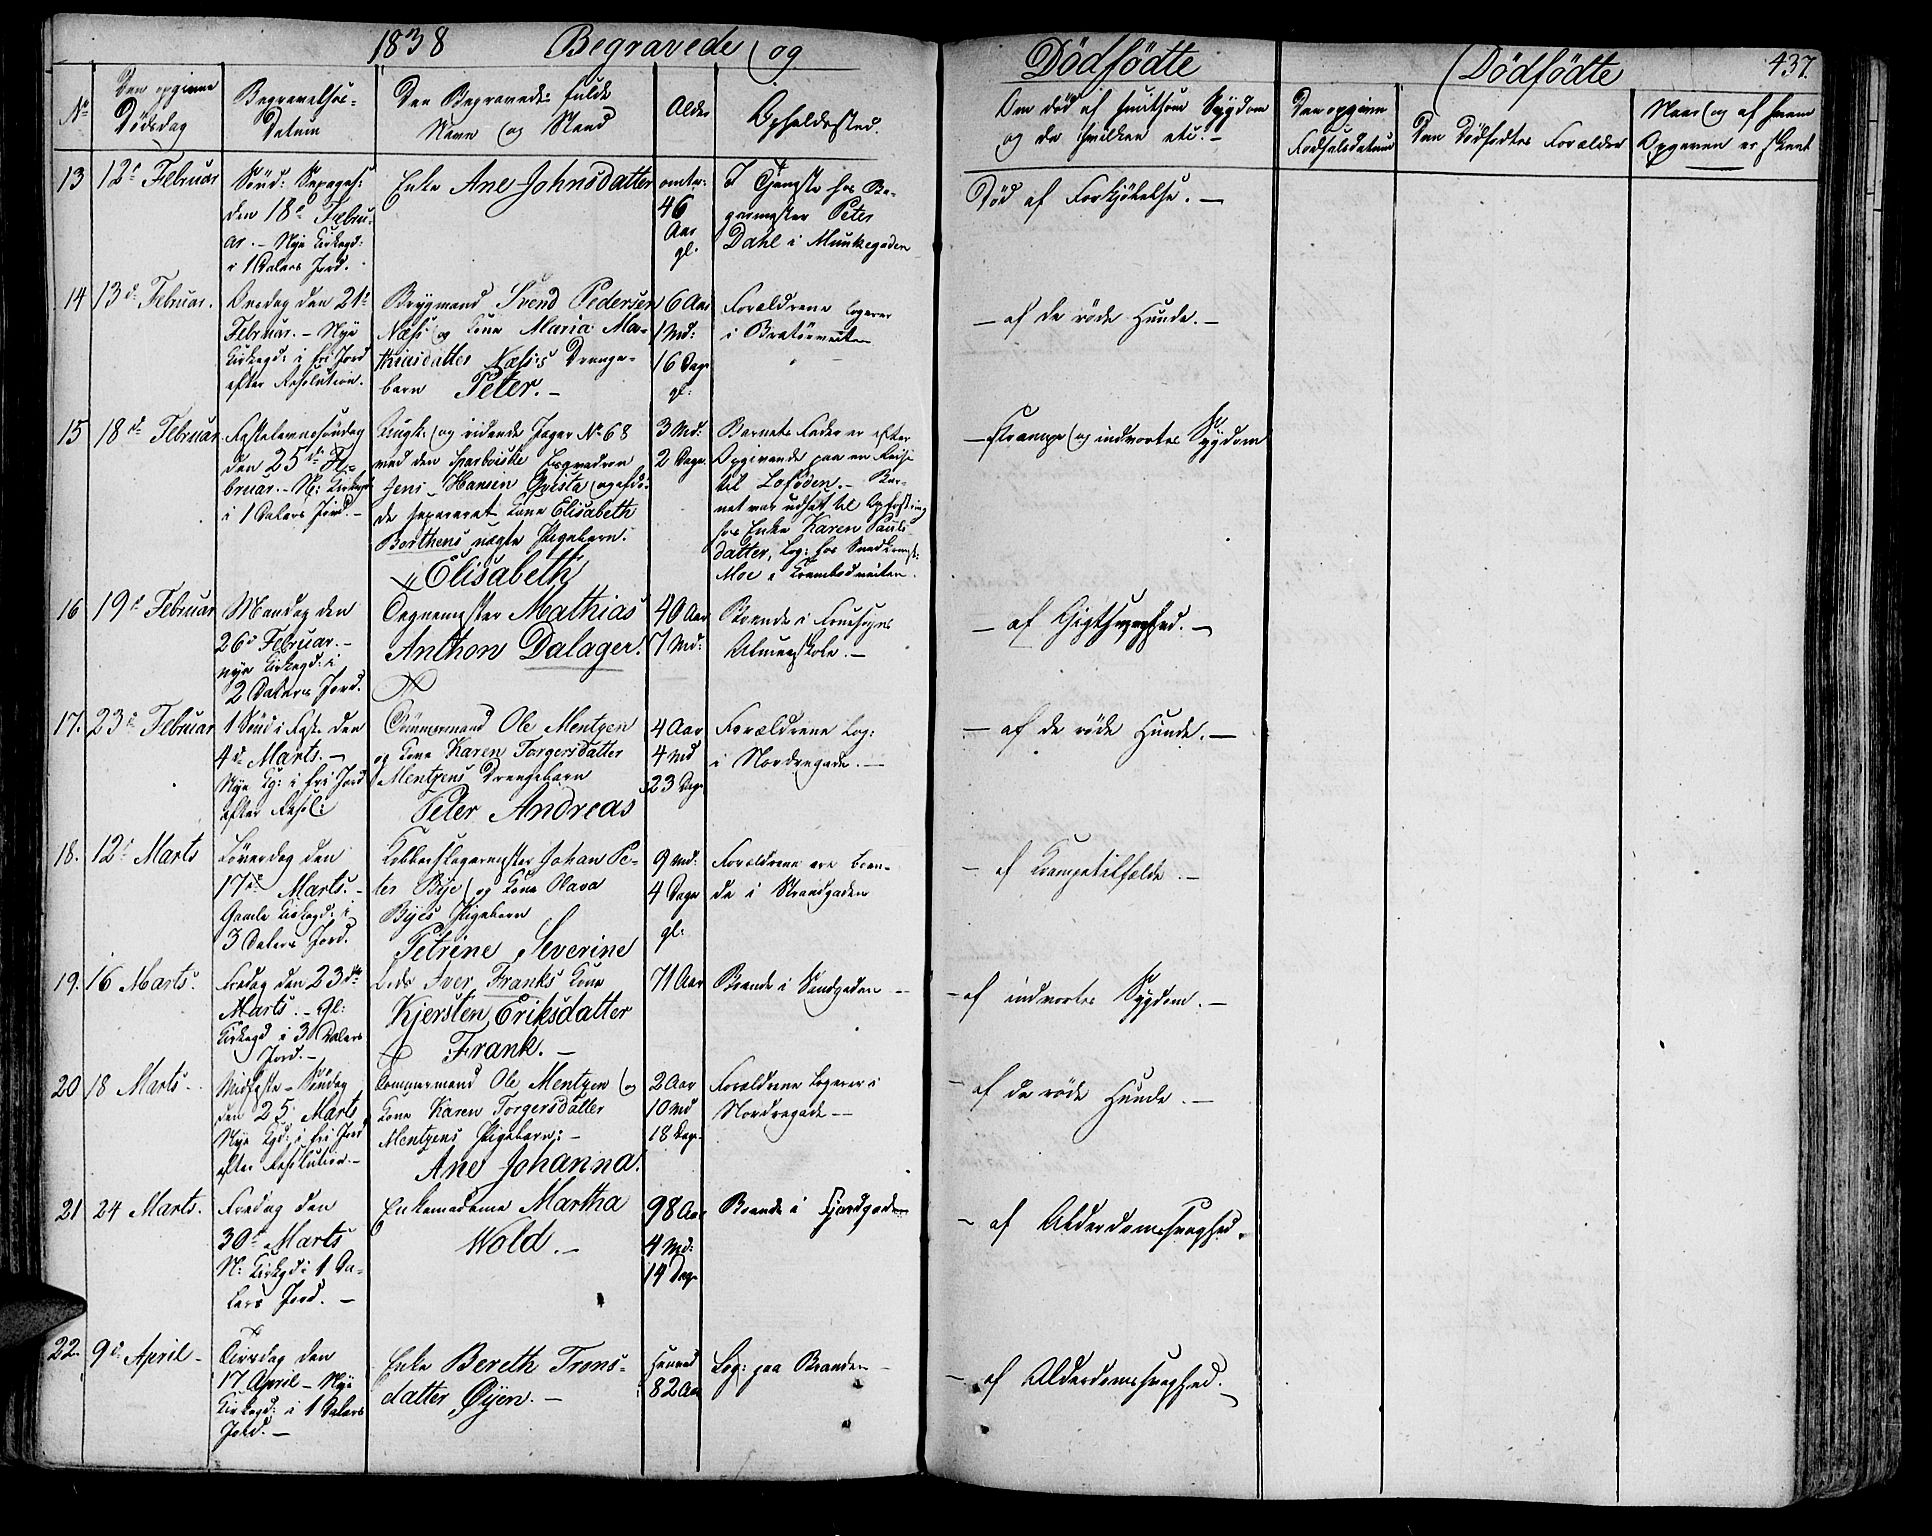 1838 Begravede og Dødfødte
Dødfødte 437.
No
Den opgivne Dødsdag
Begravelses-Datum
Den Begravedes fulde Navn og Stand
Alder
Opholdssted.
Om død af smitsom Sygdom og da hvilken etc.-
Den opgivne Fødselsdatum
Den Dødfødtes Forældre
Naar og af hvem Opgaven er skeet
13 12te Februar
Sønd: Sexages:
den 18de Febru-
ar. - Nye Kirkegd:
i 1 Dalers Jord.
Enke Ane Johnsdatter
omtr:
46
Aar
gl.
I Tjeneste hos Ba-
germester Peter
Dahl i Munkegaden
Død af Forkjølelse. -
14 13de Februar.
Onsdag den 21de
Februar. - Nye
Kirkegd: i fri Jord
efter Resolution.
Brygmand Svend Pedersen
Næss og Kone Maria Ma-
thiasdatter Næss's Drenge-
barn Peter. -
6 Aar
1 Md:
16 Dage
gl:
Forældrene logerer
i Bratørveiten
- af de røde Hunde. -
15 18de Februar
Fastelavnssøndag
den 25de Fe-
bruar. - N: Kirkegd
i 1 Dalers Jord. -
Ungk: og ridende Jæger No 68
ved den Sparboiske Esqvadron
Jens Hansen Qvista og
de separeret Kone Elisabeth
Berthens uægte Pigebarn.
Elisabeth
3 Md:
2 Dage.
Barnets Fader er efter
Opgivende paa en Reise
til Lofoden. - Bar-
net var udsat til Opfostring
hos Enke Karen Pauls-
datter, Log: hos Snedkermest:
Moe i Krambodveiten.
- Krampe og indvortes Sygdom
16 19de Februar
Mandag den
26de Februar. -
nye Kirkegd: i
2 Dalers Jord.
Tegnemester Mathias
Anthon Dalager.
40 Aar
7 Md:
Boende i Fruesogns
Almueskole. -
- af Gigtsvaghed. -
17. 23de Februar
1 Sønd i Faste den
4de Marts. -
Nye Kg: i fri Jord
efter Resol:
Tømmermand Ole Mentzen
og Kone Karen Torgersdatter
Mentzens Drengebarn
Peter Andreas
4 Aar
4 Md
23 Dage
Forældrene Log:
i Nordregade. -
- af de røde Hunde. -
18. 12te Marts
Løverdag den
17de Marts. -
Gamle Kirkegd: i
3 Dalers Jord.
Kobberslagermester Johan Pe-
ter Bye og Kone Olava
Byes Pigebarn
Petrine Severine
9 Md:
4 Dage
gl:
Forældrene ere boen-
de i Strandgaden
- af Krampetilfælde. -
19. 16 Marts.
Fredag den 23de
Marts. - Gl:
Kirkegd i 3 Dalers
Jord. -
Iver Franks Kone
Kjersten Eriksdatter
Frank. -
71 Aar
Boende i Sandgaden -
- af indvortes Sygdom. -
20 18 Marts.
Midfaste-Søndag
den 25 Marts
Nye Kgd: i fri Jord
efter Resolution. -
Tømmermand Ole Mentzen og
Kone Karen Torgersdatter
Mentzens Pigebarn: -
Ane Johanna.
2 Aar
10 Md
18 Dage
Forældrene logerer i
Nordregade -
- af de røde Hunde. -
21 24 Marts.
Fredag den
30te Marts
N: Kirkegd i 1 Da-
lers Jord. -
Enkemadame Martha
Wold. -
98 Aar
4 Md:
14 Dage
Boende i Fjordgaden
- af Alderdomssvaghed.
22. 9de April -
Tirsdag den
17 April - Nye
Kirkegd: i 1 Dalers
Jord. -
Enke Bereth Trons-
datter Øyen. -
82 Aar
Log: paa Branden -
- af Alderdomssvaghed.